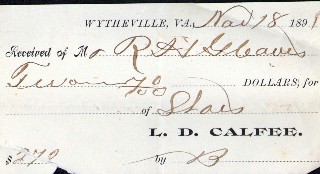 WYTHEVILLE, VA., Nov 18 1891
Received of Mr R A Gleaves
Two 70/100 DOLLARS, for
of
L. D. CALFEE.
$2 70 by B